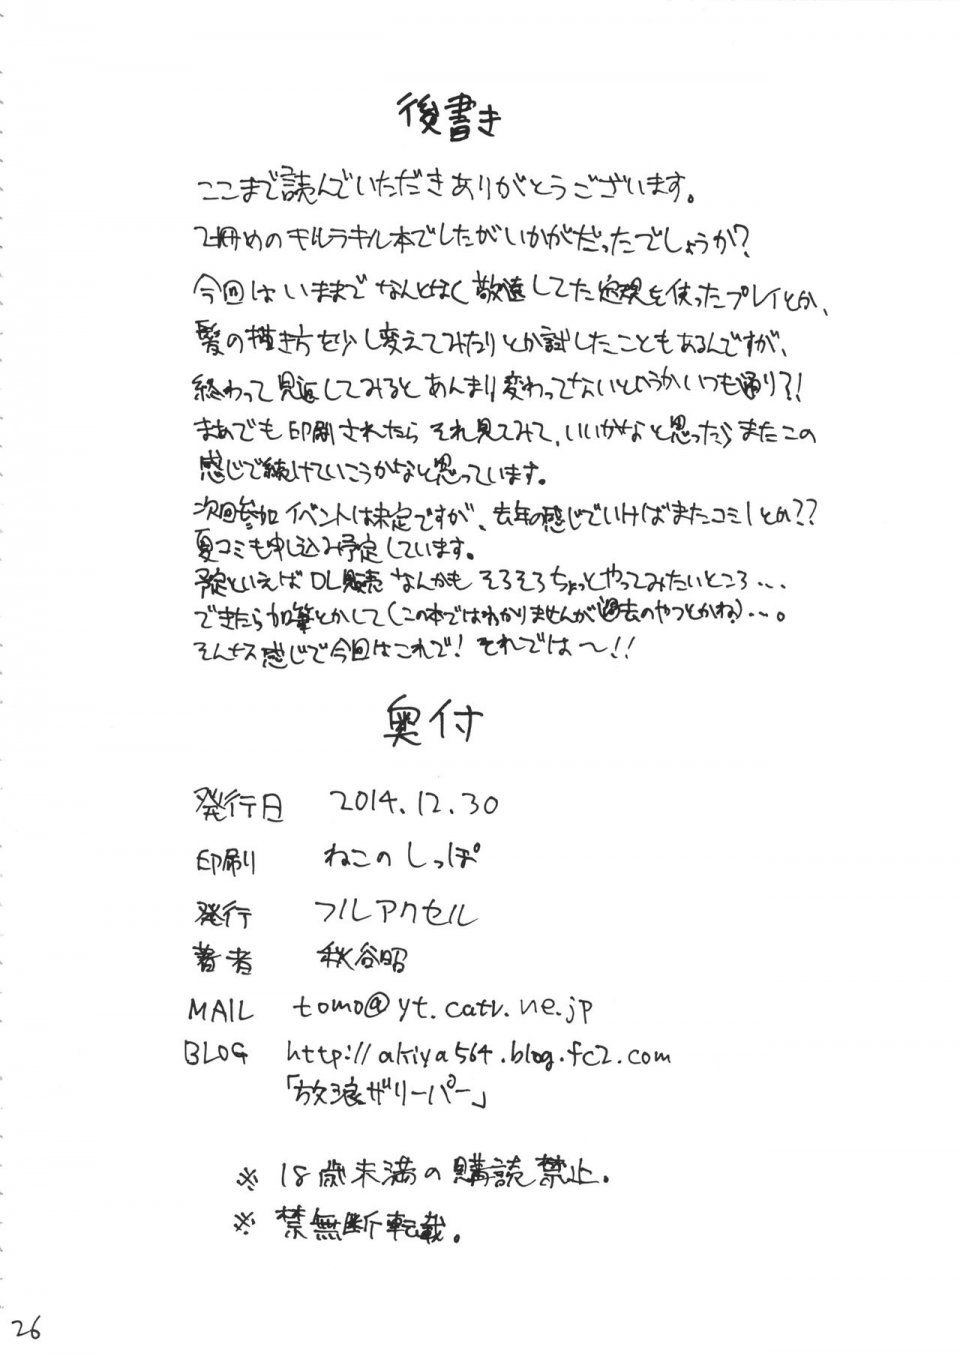 後書き
ここまで読んでいただきありがとうございます。
2冊めのキルラキル本でしたがいかがだったでしょうか?
今回はいままでなんとなく敬遠してた定規を使ったプレイとか、
髪の描き方を少し変えてみたりとか試したこともあるんですが、
終わって見返してみるとあんまり変わってないというかいつも通り?!
まあでも印刷されたらそれ見てみて、いいかなと思ったらまたこの
感じで続けていこうかなと思っています。
次回参加イベントは未定ですが、去年の感じでいけばまたコミ1とか??
夏コミも申し込み予定しています。
予定といえばDL販売なんかもそろそろちょっとやってみたいところ・・・
できたら加筆とかして(この本ではわかりませんが過去のやつとかね)・・・。
そんナス感じで今回はこれで!それでは〜!!
奥付
発行日 2014.12.30
印刷 ねこのしっぽ
発行 フルアクセル
著者 秋谷昭
MAIL tomo@yt.catv.ne.jp
BLOG http://akiya564.blog.fc2.com
「放浪ザリーパー」
※ 18歳未満の購読禁止。
※ 禁無断転載。
26